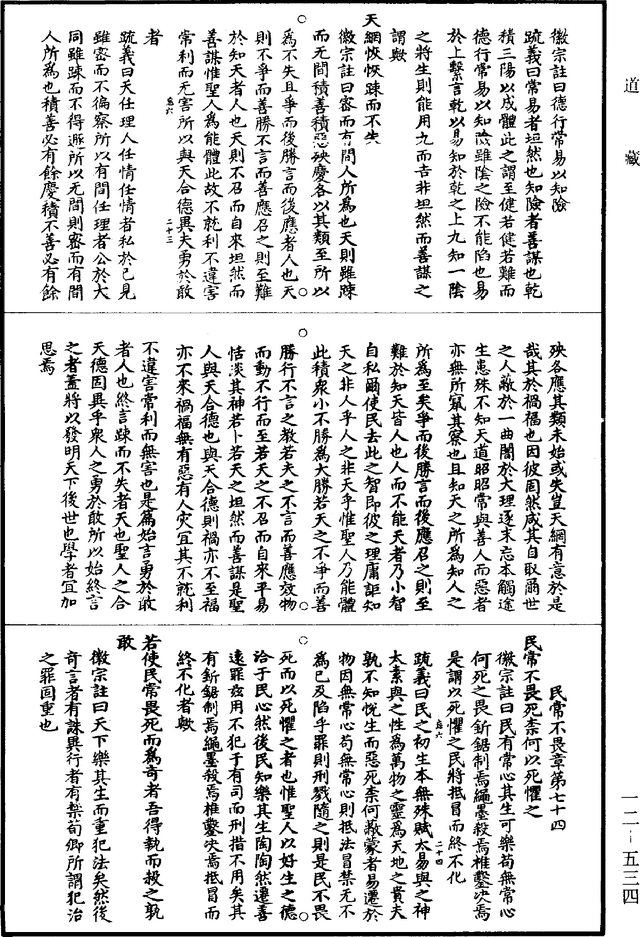 道藏
徽宗註曰德行常易以知險
疏義曰常易者坦然也知險者善謀也乾
積三陽以成體此之謂至健若健若難而
德行常易以知險雖陰之險不能陷也易
於上繫言乾以易知於乾之上九知一陰
之將生則能用九而吉非坦然而善謀之
謂歟
天網恢恢踈而不失
徽宗註曰密而有間人所為也天則雖踈
而无間積善積惡殃慶各以其類至所以
為不失且爭而後勝言而後應者人也天
則不爭而善勝不言而善應召之則至難
於知天者人也天則不召而自來坦然而
善謀惟聖人為能體此故不就利不違害
常利而无害所以與天合德異夫勇於敢
者
疏義曰天任理人任情任情者私於己見
雖密而不徧察所以有間任理者公於大
同雖踈而不得遯所以无間則密而有間
人所為也積善必有餘慶積不善必有餘
殃各應其類未始或失豈天網有意於是
哉其於禍福也因彼固然咸其自取爾世
之人敝於一曲闇於大理逐末忘本觸途
生患殊不知天道昭昭常與善人而惡者
亦無所竄其察也且知天之所為知人之
所為至矣爭而後勝言而後應召之則至
難於知天皆人也人而不能天者乃小智
自私爾使民去此之智即彼之理庸詎知
天之非人乎人之非天乎惟聖人乃能體
此積衆小不勝為大勝若天之不爭而善
勝行不言之教若夫之不言而善應效物
而動不行而至若天之不召而自來平易
恬淡其神若卜若天之坦然而善謀是聖
人與天合德也與天合德則禍亦不至福
亦不來禍福無有惡有人災宜其不就利
不違害常利而無害也是篇始言勇於敢
者人也終言踈而不失者天也聖人之合
天德固異乎衆人之勇於敢所以始終言
之者蓋將以發明天下後世也學者宜加
思焉
民常不畏章第七十四
民常不畏死柰何以死懼之
徽宗註曰民有常心其生可樂苟無常心
何死之畏釿鋸制焉繩墨殺焉椎鑿決焉
是謂以死懼之民將抵冒而終不化
疏義曰民之初生本無殊賦太易與之神
太素與之性為萬物之靈為天地之貴夫
孰不知悅生而惡死柰何蔽蒙者易遷於
物因無常心苟無常心則抵法冒禁无不
為已及陷乎罪則刑戮隨之則是民不畏
死而以死懼之者也惟聖人以好生之德
洽于民心然後民知樂其生陶陶然遷善
遠罪兹用不犯于有司而刑措不用矣其
有釿鋸制焉繩墨殺焉椎鑿決焉抵冒而
終不化者歟
若使民常畏死而為奇者吾得執而殺之孰
敢
徽宗註曰天下樂其生而重犯法矣然後
奇言者有誅異行者有禁荀卿所謂犯治
之罪固重也
一二-五三四